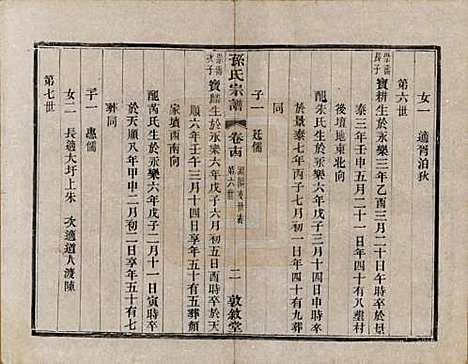 女一 適胥泊狄
第六世
崇儒長子 寶耕生於永樂三年乙酉三月二十日午時卒於景
泰三年壬申五月二十一日享年四十有八塟村
後墳地東北向
配朱氏生於永樂六年戊子三月十四日申時卒
於景泰七年丙子七月初一日年四十有九塟
同
子一 廷儒
孫氏宗譜 卷十四 第六世 二 敦敘堂
崇儒次子 寶麟生於永樂六年戊子六月初五日酉時卒於天
順六年壬午三月十四日享年五十有五葬顏
家墳西南向
配芮氏生於永樂六年戊子二月十一日寅時卒
於天順八年甲申二月初二日享年五十有七
塟同
子一 惠儒
女二 長適大圩上朱 次適道人渡陳
第七世